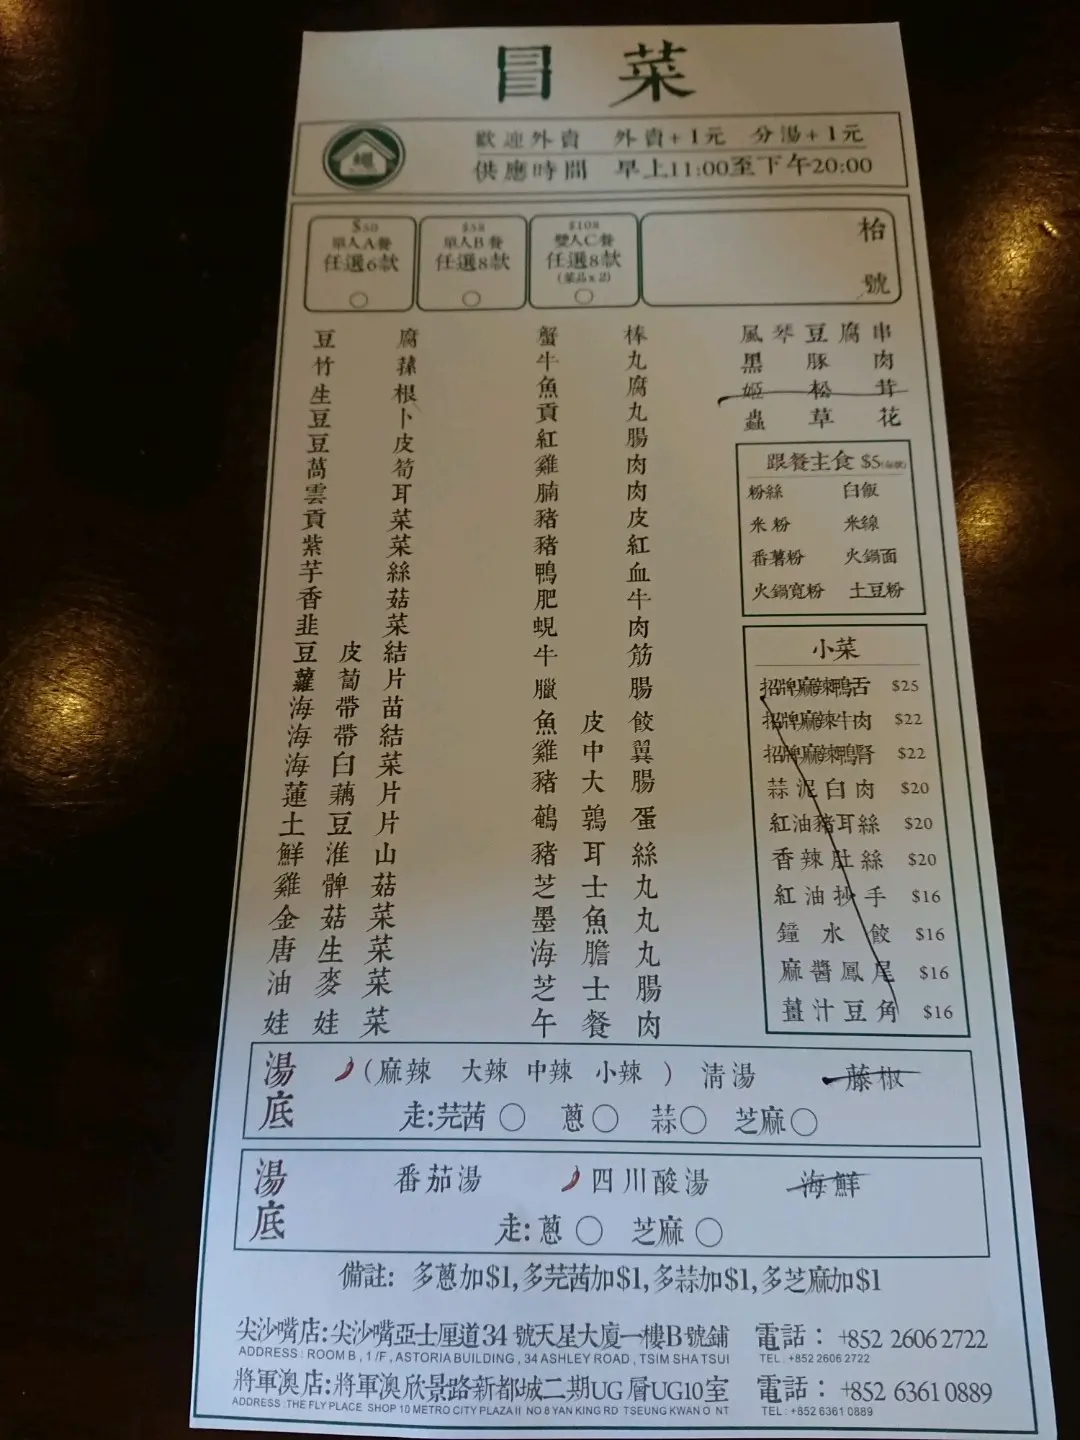 冒菜
歡迎外賣 外賣+1元 分湯+1元
供應時間 早上11:00至下午20:00
$50
單人A餐
任選6款
$58
單人B餐
任選8款
$108
雙人C餐
任選8款
(菜品x2)
枱號
豆腐
竹蓀
生根
豆卜
豆皮
萵筍
雲耳
貢菜
紫菜
芋絲
香菇
韭菜
豆皮結
蘿蔔片
海帶苗
海帶結
海白菜
蓮藕片
土豆片
鮮淮山
雞髀菇
金菇菜
唐生菜
油麥菜
娃娃菜
蟹棒
牛丸
魚腐
貢丸
紅腸
雞肉
腩肉
豬皮
豬紅
鴨血
肥牛
蜆肉
牛筋
臘腸
魚皮餃
雞中翼
豬大腸
鵪鶉蛋
豬耳絲
芝士丸
墨魚丸
海膽丸
芝士腸
午餐肉
風琴豆腐串
黑豚肉
姬松茸
蟲草花
跟餐主食 $5
粉絲 白飯
米粉 米線
番薯粉 火鍋面
火鍋寬粉 土豆粉
小菜
招牌麻辣鴨舌 $25
招牌麻辣牛肉 $22
招牌麻辣鴨腎 $22
蒜泥白肉 $20
紅油豬耳絲 $20
香辣肚絲 $20
紅油抄手 $16
鐘水餃 $16
麻醬鳳尾 $16
薑汁豆角 $16
湯底 (麻辣 大辣 中辣 小辣 ) 清湯 藤椒
走:芫茜 ○ 蔥○ 蒜○ 芝麻○
湯底 番茄湯 四川酸湯 海鮮
走:蔥 ○ 芝麻 ○
備註: 多蔥加$1,多芫茜加$1,多蒜加$1,多芝麻加$1
尖沙嘴店:尖沙嘴亞士厘道34號天星大廈一樓B號鋪 電話：+852 2606 2722
ADDRESS : ROOM B , 1 /F , ASTORIA BUILDING , 34 ASHLEY ROAD , TSIM SHA TSUI TEL : +852 2606 2722
將軍澳店:將軍澳欣景路新都城二期UG層UG10室 電話：+852 6361 0889
ADDRESS :THE FLY PLACE SHOP 10 METRO CITY PLAZA II NO 8 YAN KING RD TSEUNG KWAN O NT TEL : +852 6361 0889